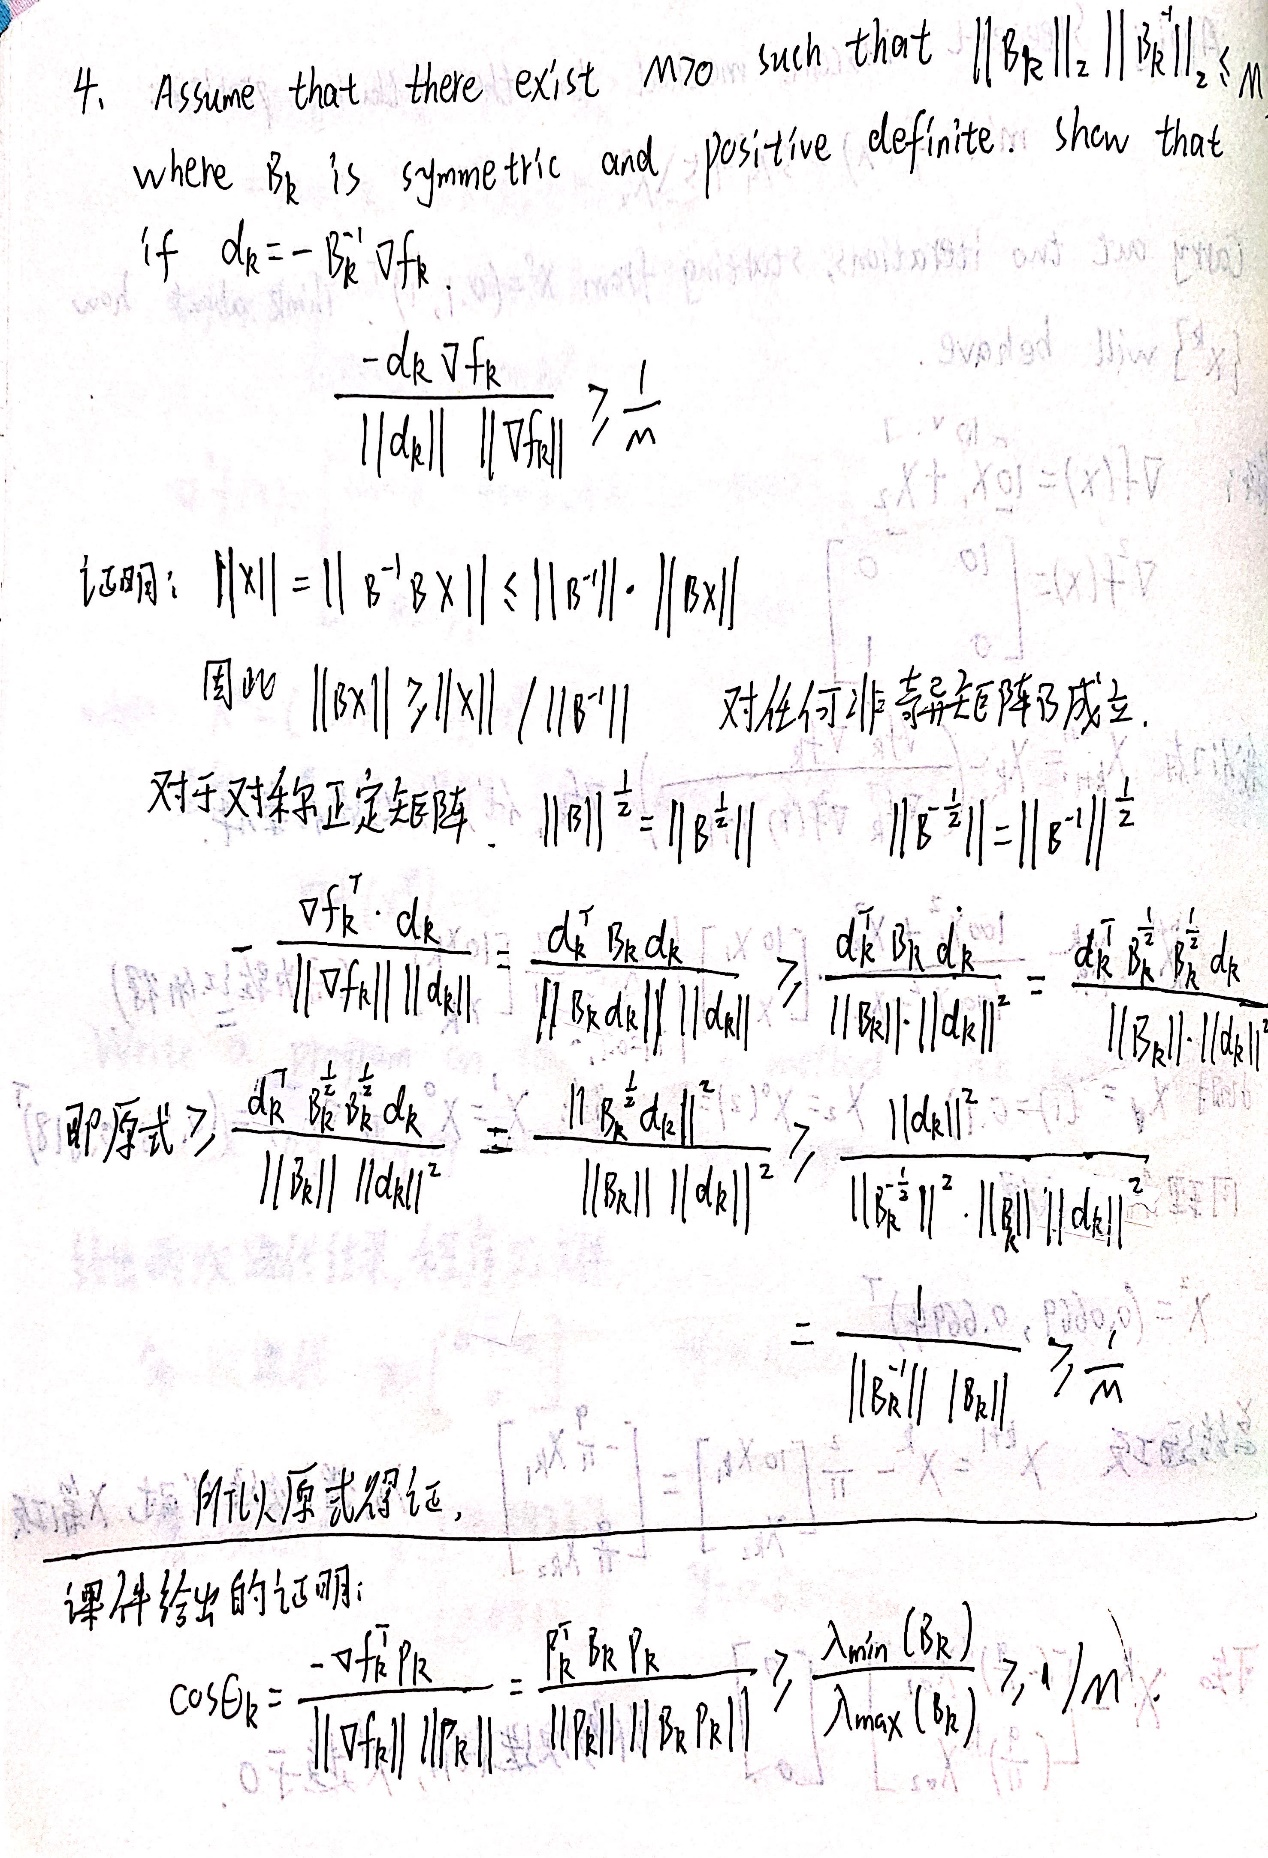 4. Assume that there exist M>0 such that ||B_k||_2 ||B_k^{-1}||_2 ≤ M
where B_k is symmetric and positive definite. show that
if d_k = - B_k^{-1} ∇f_k.
\frac{-d_k ∇f_k}{||d_k|| ||∇f_k||} ≥ \frac{1}{M}
证明: ||x|| = || B^{-1} B x || ≤ ||B^{-1}|| · ||Bx||
因此 ||Bx|| ≥ ||x|| / ||B^{-1}|| 对任何非奇异矩阵B成立.
对于对称正定矩阵. ||B||^{\frac{1}{2}} = ||B^{\frac{1}{2}}|| ||B^{-\frac{1}{2}}|| = ||B^{-1}||^{\frac{1}{2}}
- \frac{∇f_k^T · d_k}{||∇f_k|| ||d_k||} = \frac{d_k^T B_k d_k}{||B_k d_k|| ||d_k||} ≥ \frac{d_k^T B_k d_k}{||B_k|| · ||d_k||^2} = \frac{d_k^T B_k^{\frac{1}{2}} B_k^{\frac{1}{2}} d_k}{||B_k|| · ||d_k||^2}
即原式 ≥ \frac{d_k^T B_k^{\frac{1}{2}} B_k^{\frac{1}{2}} d_k}{||B_k|| ||d_k||^2} = \frac{||B_k^{\frac{1}{2}} d_k||^2}{||B_k|| ||d_k||^2} ≥ \frac{||d_k||^2}{||B_k^{-\frac{1}{2}}||^2 · ||B_k|| ||d_k||^2}
= \frac{1}{||B_k^{-1}|| |B_k||} ≥ \frac{1}{M}
所以原式得证.
课件给出的证明:
cosθ_k = \frac{-∇f_k^T P_k}{||∇f_k|| ||P_k||} = \frac{P_k^T B_k P_k}{||P_k|| ||B_k P_k||} ≥ \frac{λ_{min}(B_k)}{λ_{max}(B_k)} ≥ 1/M.